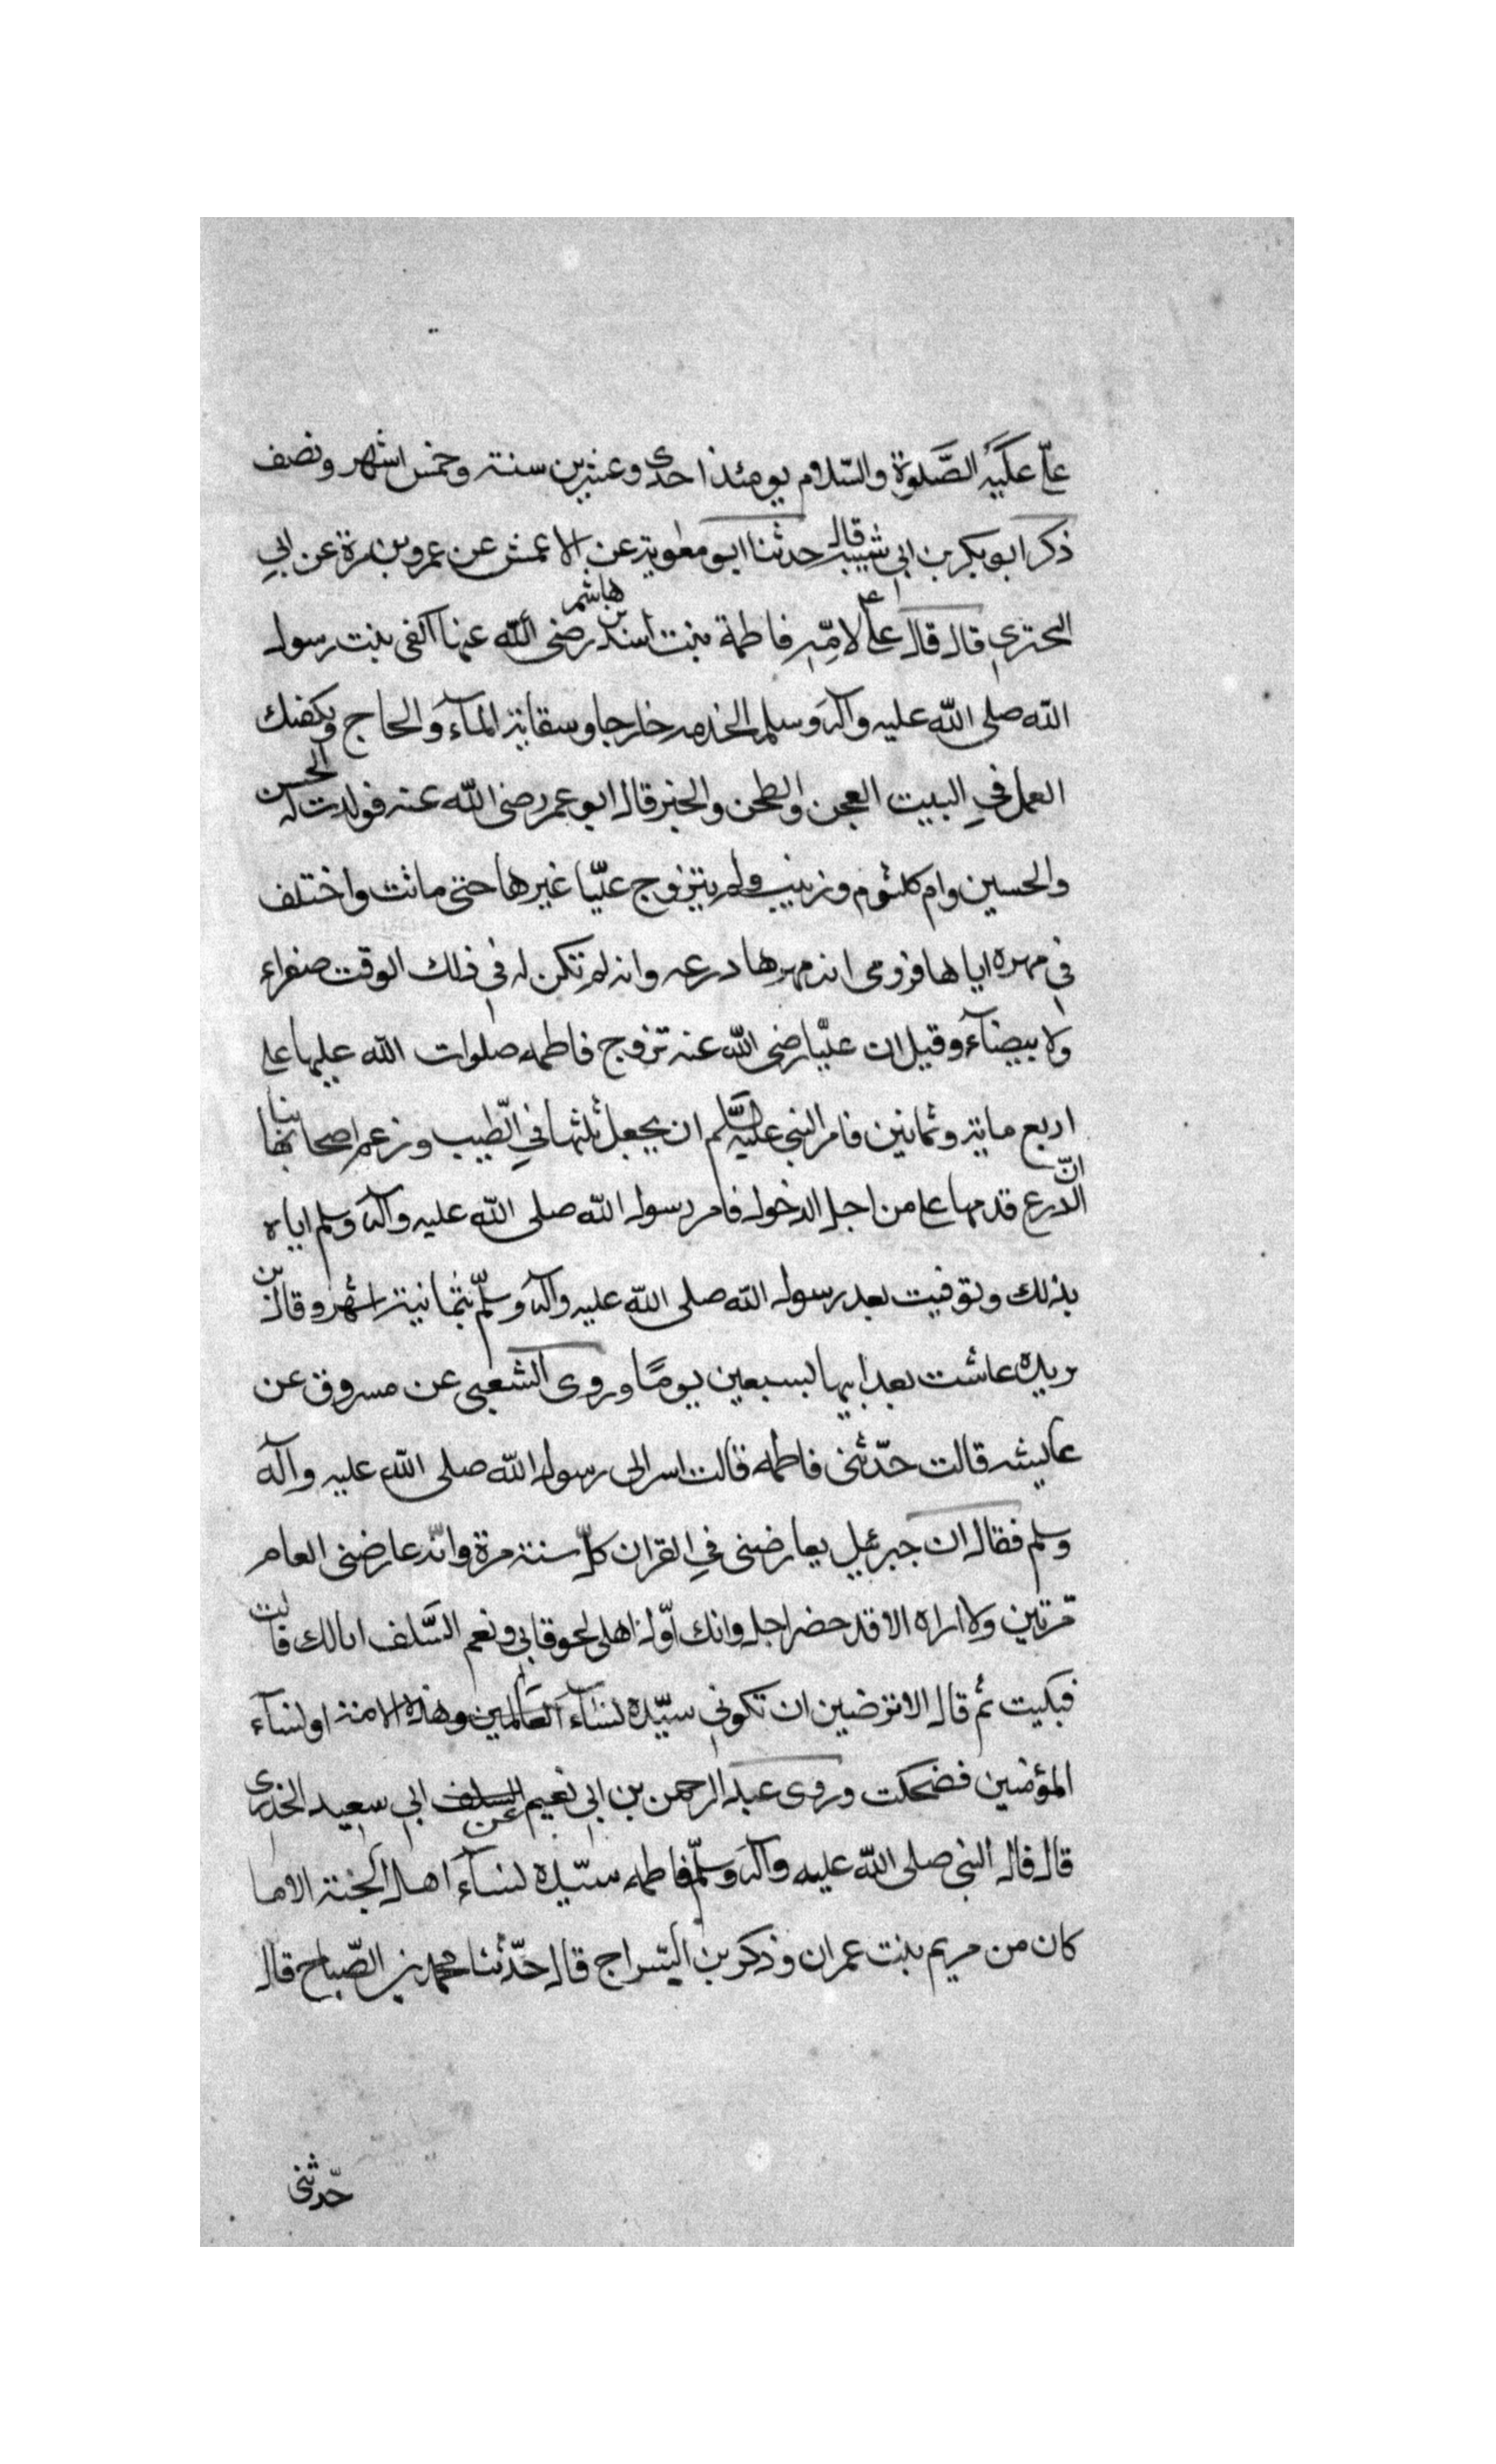 علّي عليه الصّلوة والسّلام يومئذ احدى وعشرين سنة وخمس اشهر ونصف
ذكر ابو بكر بن ابي شيبه قال حدثنا ابو معوية عن الاعمش عن عمرو بن مرة عن ابي
البحتري قال قال علي لامّه فاطمة بنت اسد بن هاشم رضى الله عنها اكفى بنت رسول
الله صلى الله عليه وآله وسلم الخدمه خارجا وسقاية المآء والحاج ويكفيك
العمل في البيت العجن والطحن والخبز قال ابو عمر رضى الله عنه فولدت له الحسن
والحسين وام كلثوم وزينب ولم يتزوج عليّا غيرها حتى ماتت واختلف
في مهره اياها فروى انه مهرها درعه وانه لم تكن له في ذلك الوقت صفراء
ولا بيضآء وقيل ان عليّا رضى الله عنه تزوج فاطمه صلوات الله عليهما على
اربع ماية وثمانين فامر النبي عليه السّلم ان يجعل ثلثها في الطّيب وزعم اصحابنا
انّ الدّرع قدمها على من اجل الدخول فامر رسول الله صلى الله عليه وآله وسلم اياه
بذلك وتوفيت بعد رسول الله صلى الله عليه وآله وسلّم بثمانية اشهر وقال بن
بريده عاشت بعد ابيها لسبعين يومًا وروى الشعبى عن مسروق عن
عايشه قالت حدّثنى فاطمه قالت اسر الى رسول الله صلى الله عليه وآله
وسلم فقال ان جبرئيل يعارضنى في القران كلّ سنة مرة وانّه عارضنى العام
مّرتين ولا اراه الا قد حضر اجله وانك اوّل اهلى لحوقا بي ونعم السّلف انا لك قالت
فبكيت ثم قال الا ترضين ان تكوني سيّدة نسآء العالمين وهذه الامة او نسآء
المؤمنين فضحكت وروى عبد الرحمن بن ابى نعيم عن ابي سعيد الخدرى
قال قال النبي صلى الله عليه وآله وسلّم فاطمه سيّدة نسآء اهل الجنة الا ما
كان من مريم بنت عمران وذكر بن السّراج قال حدّثنا محمد بن الصّباح قال
حّدثنى